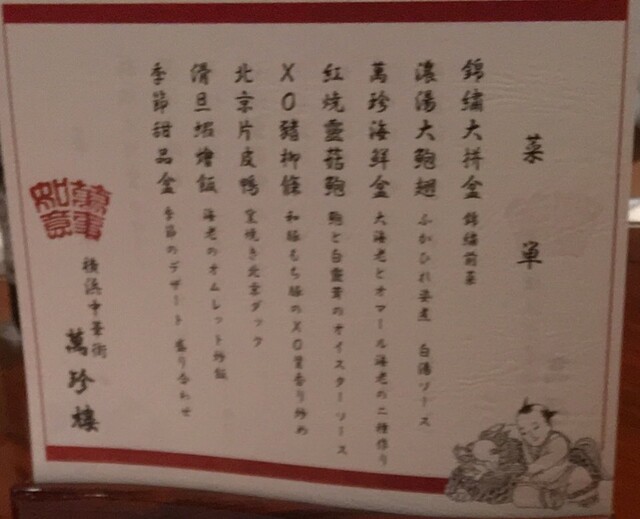 菜 単
錦繡大拼盆 錦繡前菜
濃湯大鮑翅 ふかひれ姿煮 白湯ソース
萬珍海鮮盒 大海老とオマール海老の二種作り
紅燒靈菇鮑 鮑と白霊茸のオイスターソース
XO豬柳條 和豚もち豚のXO醤香り炒め
北京片皮鴨 窯焼き北京ダック
滑旦蝦燴飯 海老のオムレット炒飯
季節甜品盒 季節のデザート 盛り合わせ
萬事如意
横浜中華街
萬珍樓